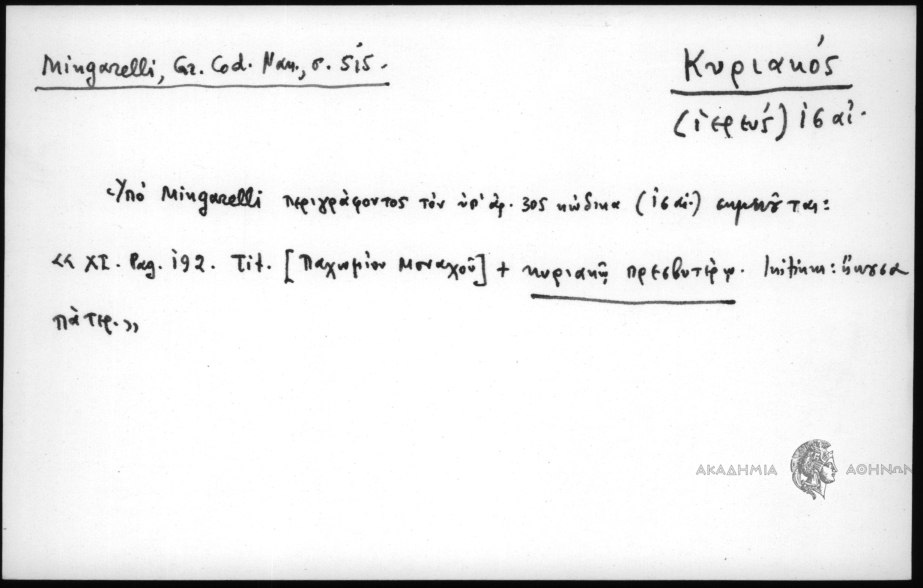 Mingarelli, Gr. Cod. Nan., σ. 515.
Κυριακός
(ἱερεύς) 16 αἰ.
Ὑπὸ Mingarelli περιγράφοντος τὸν ὑπ' ἀρ. 305 κώδικα (16 αἰ.) σημειοῦται:
« XI. Pag. 192. Tit. [Παχωμίου Μοναχοῦ] + κυριακῷ πρεσβυτέρῳ. Initium: ἤκουσα
πάτερ.»
ΑΚΑΔΗΜΙΑ ΑΘΗΝΩΝ